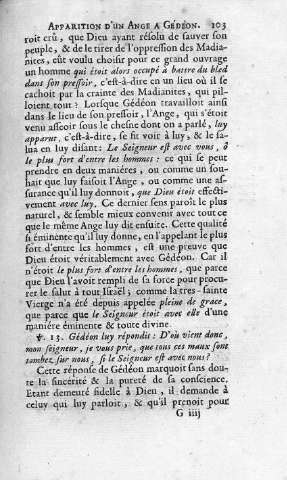 APPARITION D'UN ANGE A GÉDÉON. 103
roit crû, que Dieu ayant résolu de sauver son
peuple, & de le tirer de l'oppression des Madia-
nites, eût voulu choisir pour ce grand ouvrage
un homme qui étoit alors occupé à battre du bled
dans son pressoir, c'est-à-dire en un lieu où il se
cachoit par la crainte des Madianites, qui pil-
loient tout ? Lorsque Gédéon travailloit ainsi
dans le lieu de son pressoir, l'Ange, qui s'étoit
venu asseoir sous le chesne dont on a parlé, luy
apparut, c'est-à-dire, se fit voir à luy, & le sa-
lua en luy disant: Le Seigneur est avec vous, ô
le plus fort d'entre les hommes: ce qui se peut
prendre en deux maniéres, ou comme un sou-
hait que luy faisoit l'Ange, ou comme une as-
surance qu'il luy donnoit, que Dieu étoit effecti-
vement avec luy. Ce dernier sens paroît le plus
naturel, & semble mieux convenir avec tout ce
que le même Ange luy dit ensuite. Cette qualité
si éminente qu'il luy donne, en l'appelant le plus
fort d'entre les hommes, est une preuve que
Dieu étoit véritablement avec Gédéon. Car il
n'étoit le plus fort d'entre les hommes, que parce
que Dieu l'avoit rempli de sa force pour procu-
rer le salut à tout Israël; comme la tres-sainte
Vierge n'a été depuis appelée pleine de grace,
que parce que le Seigneur étoit avec elle d'une
maniére éminente & toute divine.
℣. 13. Gédéon luy répondit: D'où vient donc,
mon seigneur, je vous prie, que tous ces maux sont
tombez sur nous, si le Seigneur est avec nous?
Cette réponse de Gédéon marquoit sans dou-
te la sincérité & la pureté de sa conscience.
Etant demeuré fidelle à Dieu, il demande à
celuy qui luy parloit, & qu'il prenoit pour
G iiij